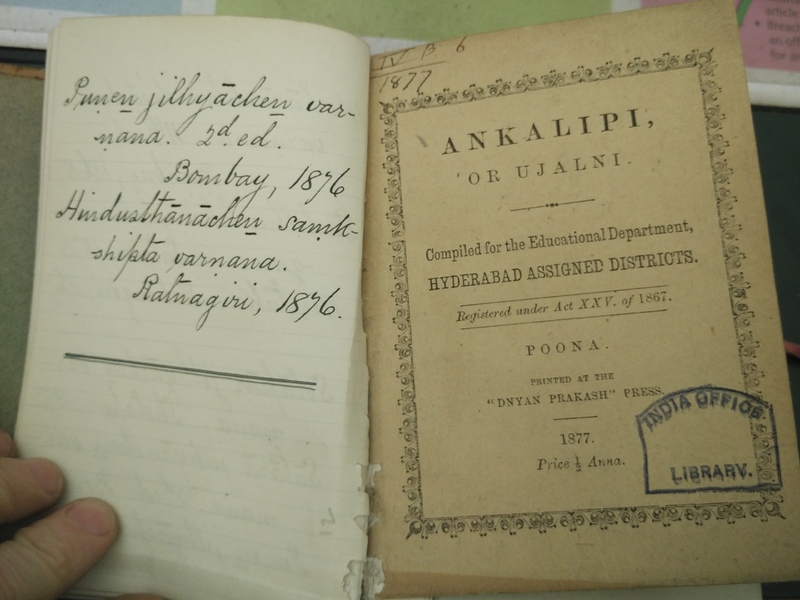 Puṇeṇ jilhyācheṇ var-
ṇana. 2d. ed.
Bombay, 1876
Hindusthānācheṇ saṃk-
shipta varṇana.
Ratnagiri, 1876.
IV B 6
1877
ANKALIPI,
OR UJALNI.
Compiled for the Educational Department,
HYDERABAD ASSIGNED DISTRICTS.
Registered under Act XXV. of 1867.
POONA.
PRINTED AT THE
"DNYAN PRAKASH" PRESS.
1877.
Price ½ Anna.
INDIA OFFICE
LIBRARY.
article
Breach
an off